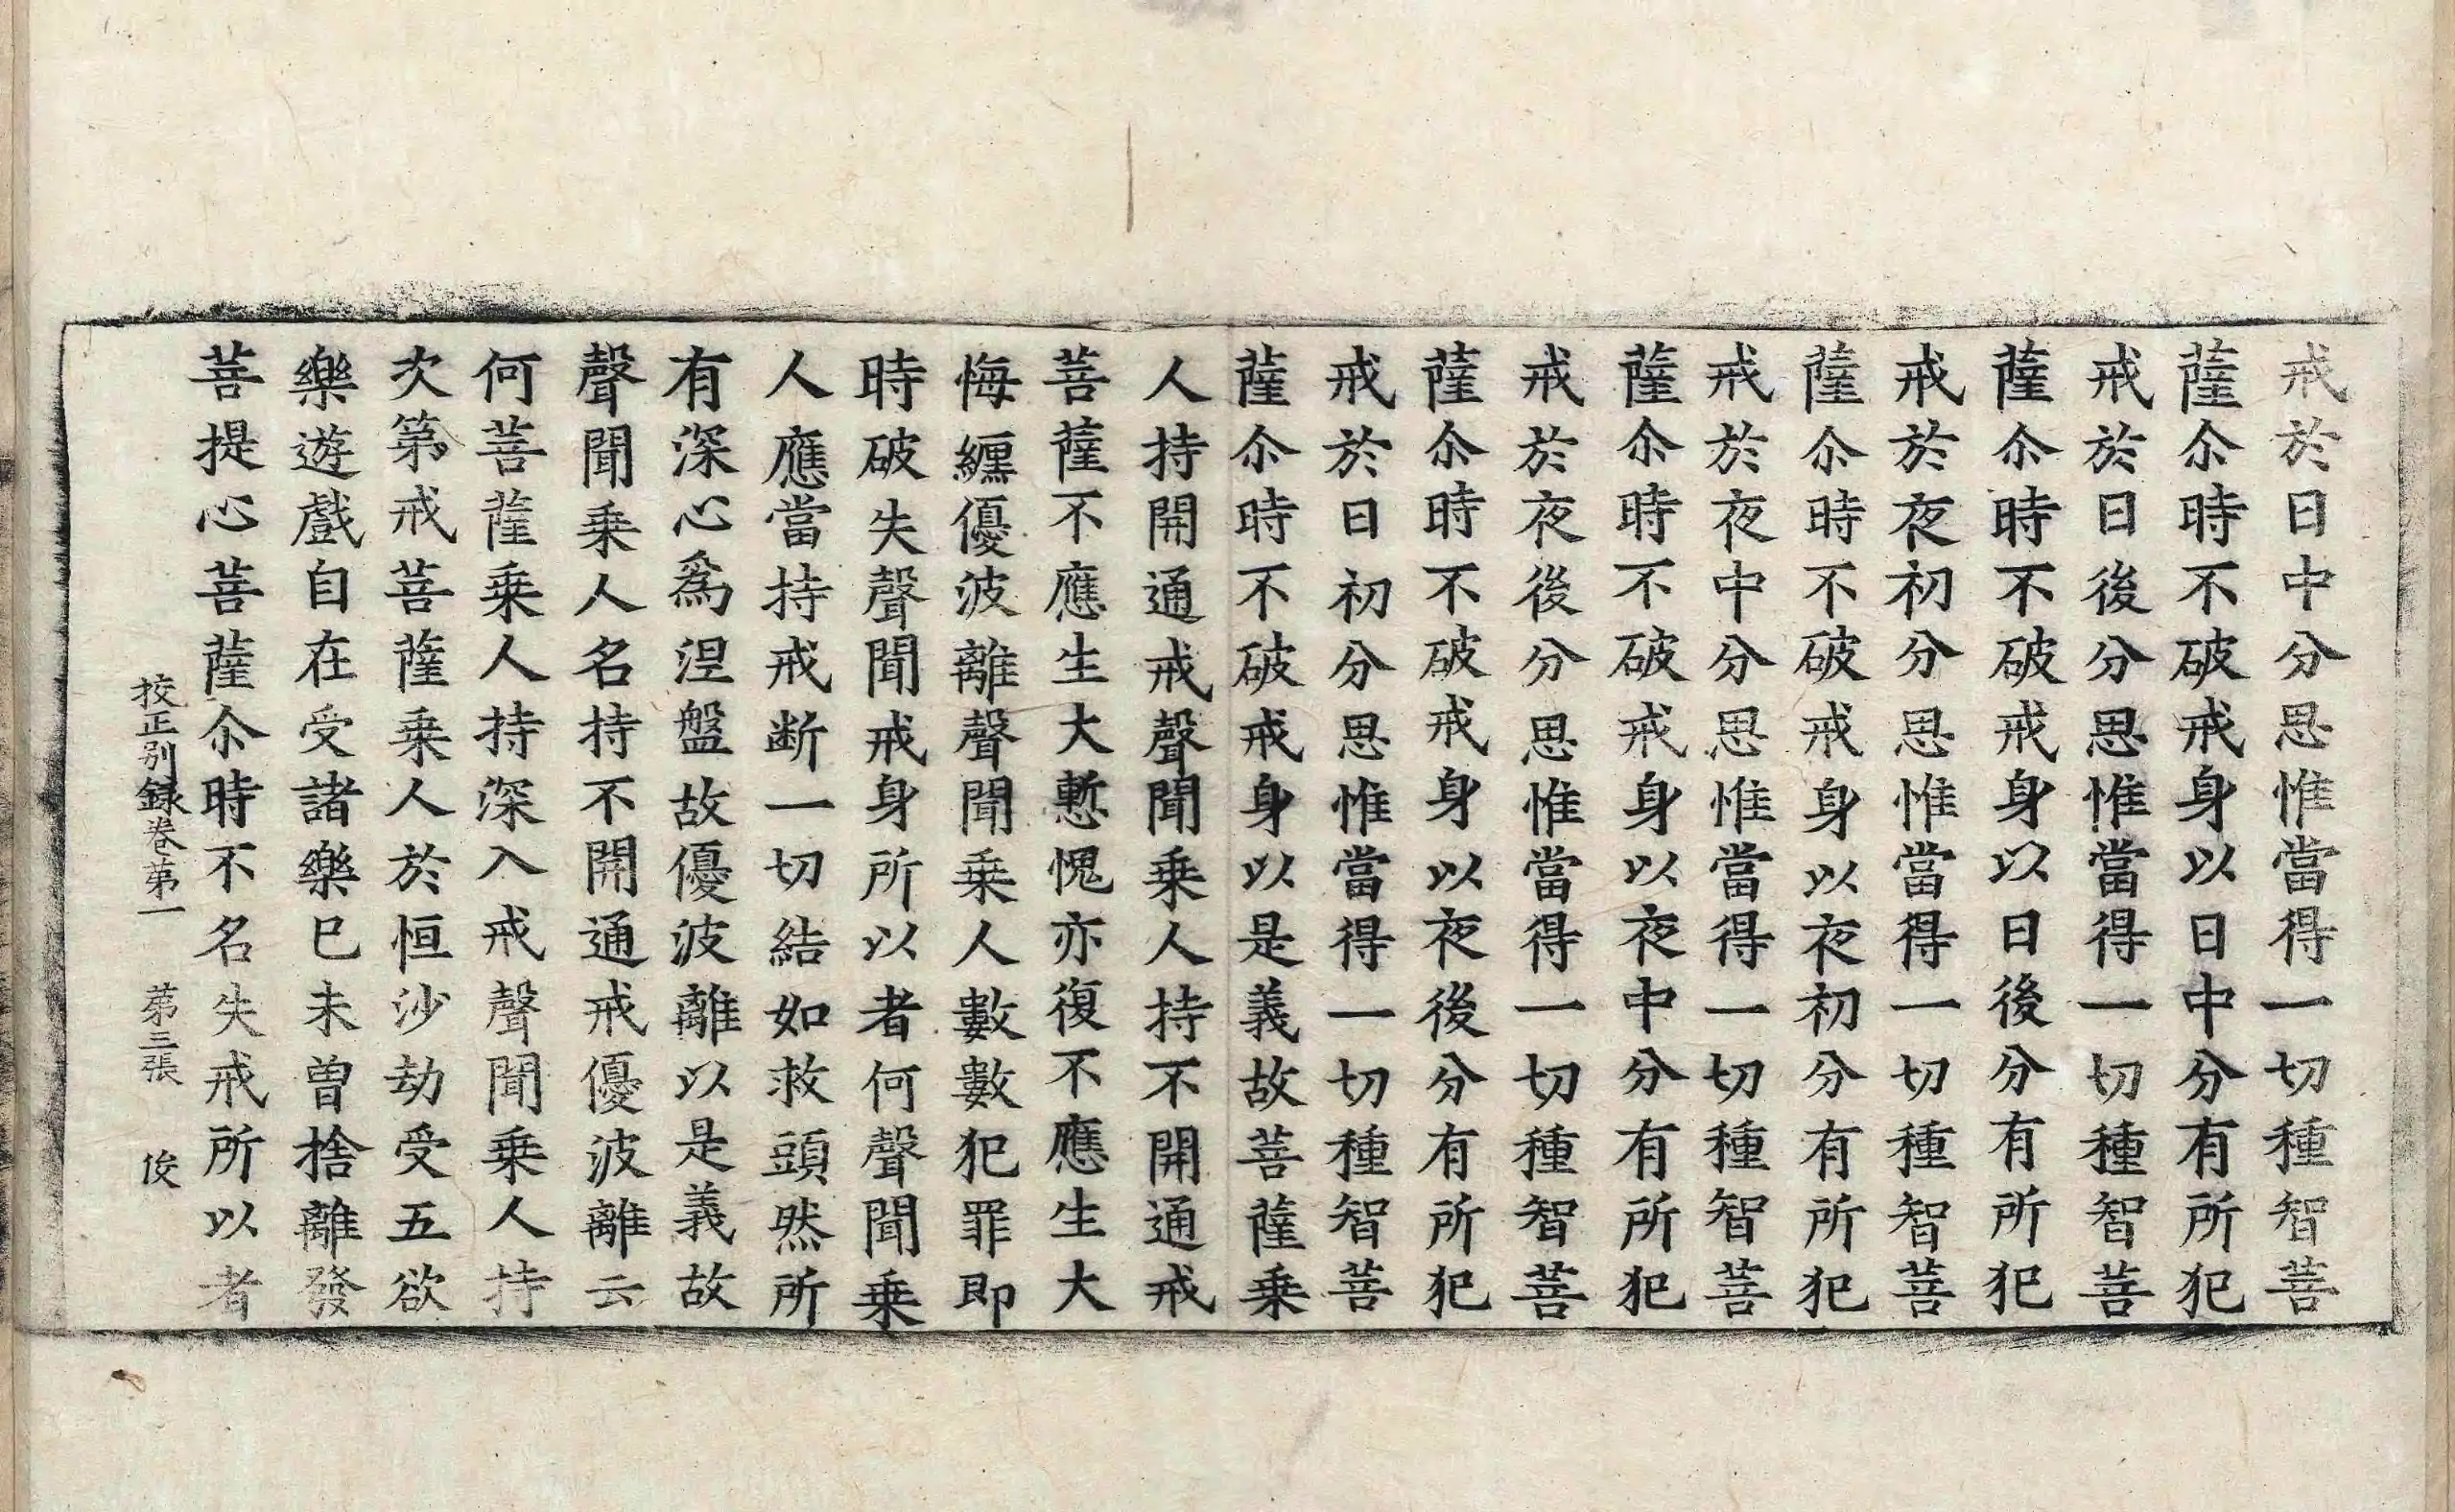 戒於日中分思惟當得一切種智菩
薩尒時不破戒身以日中分有所犯
戒於日後分思惟當得一切種智菩
薩尒時不破戒身以日後分有所犯
戒於夜初分思惟當得一切種智菩
薩尒時不破戒身以夜初分有所犯
戒於夜中分思惟當得一切種智菩
薩尒時不破戒身以夜中分有所犯
戒於夜後分思惟當得一切種智菩
薩尒時不破戒身以夜後分有所犯
戒於日初分思惟當得一切種智菩
薩尒時不破戒身以是義故菩薩乗
人持開通戒聲聞乗人持不開通戒
菩薩不應生大慙愧亦復不應生大
悔纏優波離聲聞乗人數數犯罪即
時破失聲聞戒身所以者何聲聞乗
人應當持戒断一切結如救頭然所
有深心爲涅盤故優波離以是義故
聲聞乗人名持不開通戒優波離云
何菩薩乗人持深入戒聲聞乗人持
次第戒菩薩乗人於恒沙劫受五欲
樂遊戲自在受諸樂巳未曽捨離發
菩提心菩薩尒時不名失戒所以者
挍正別録卷第一 第三張 俊